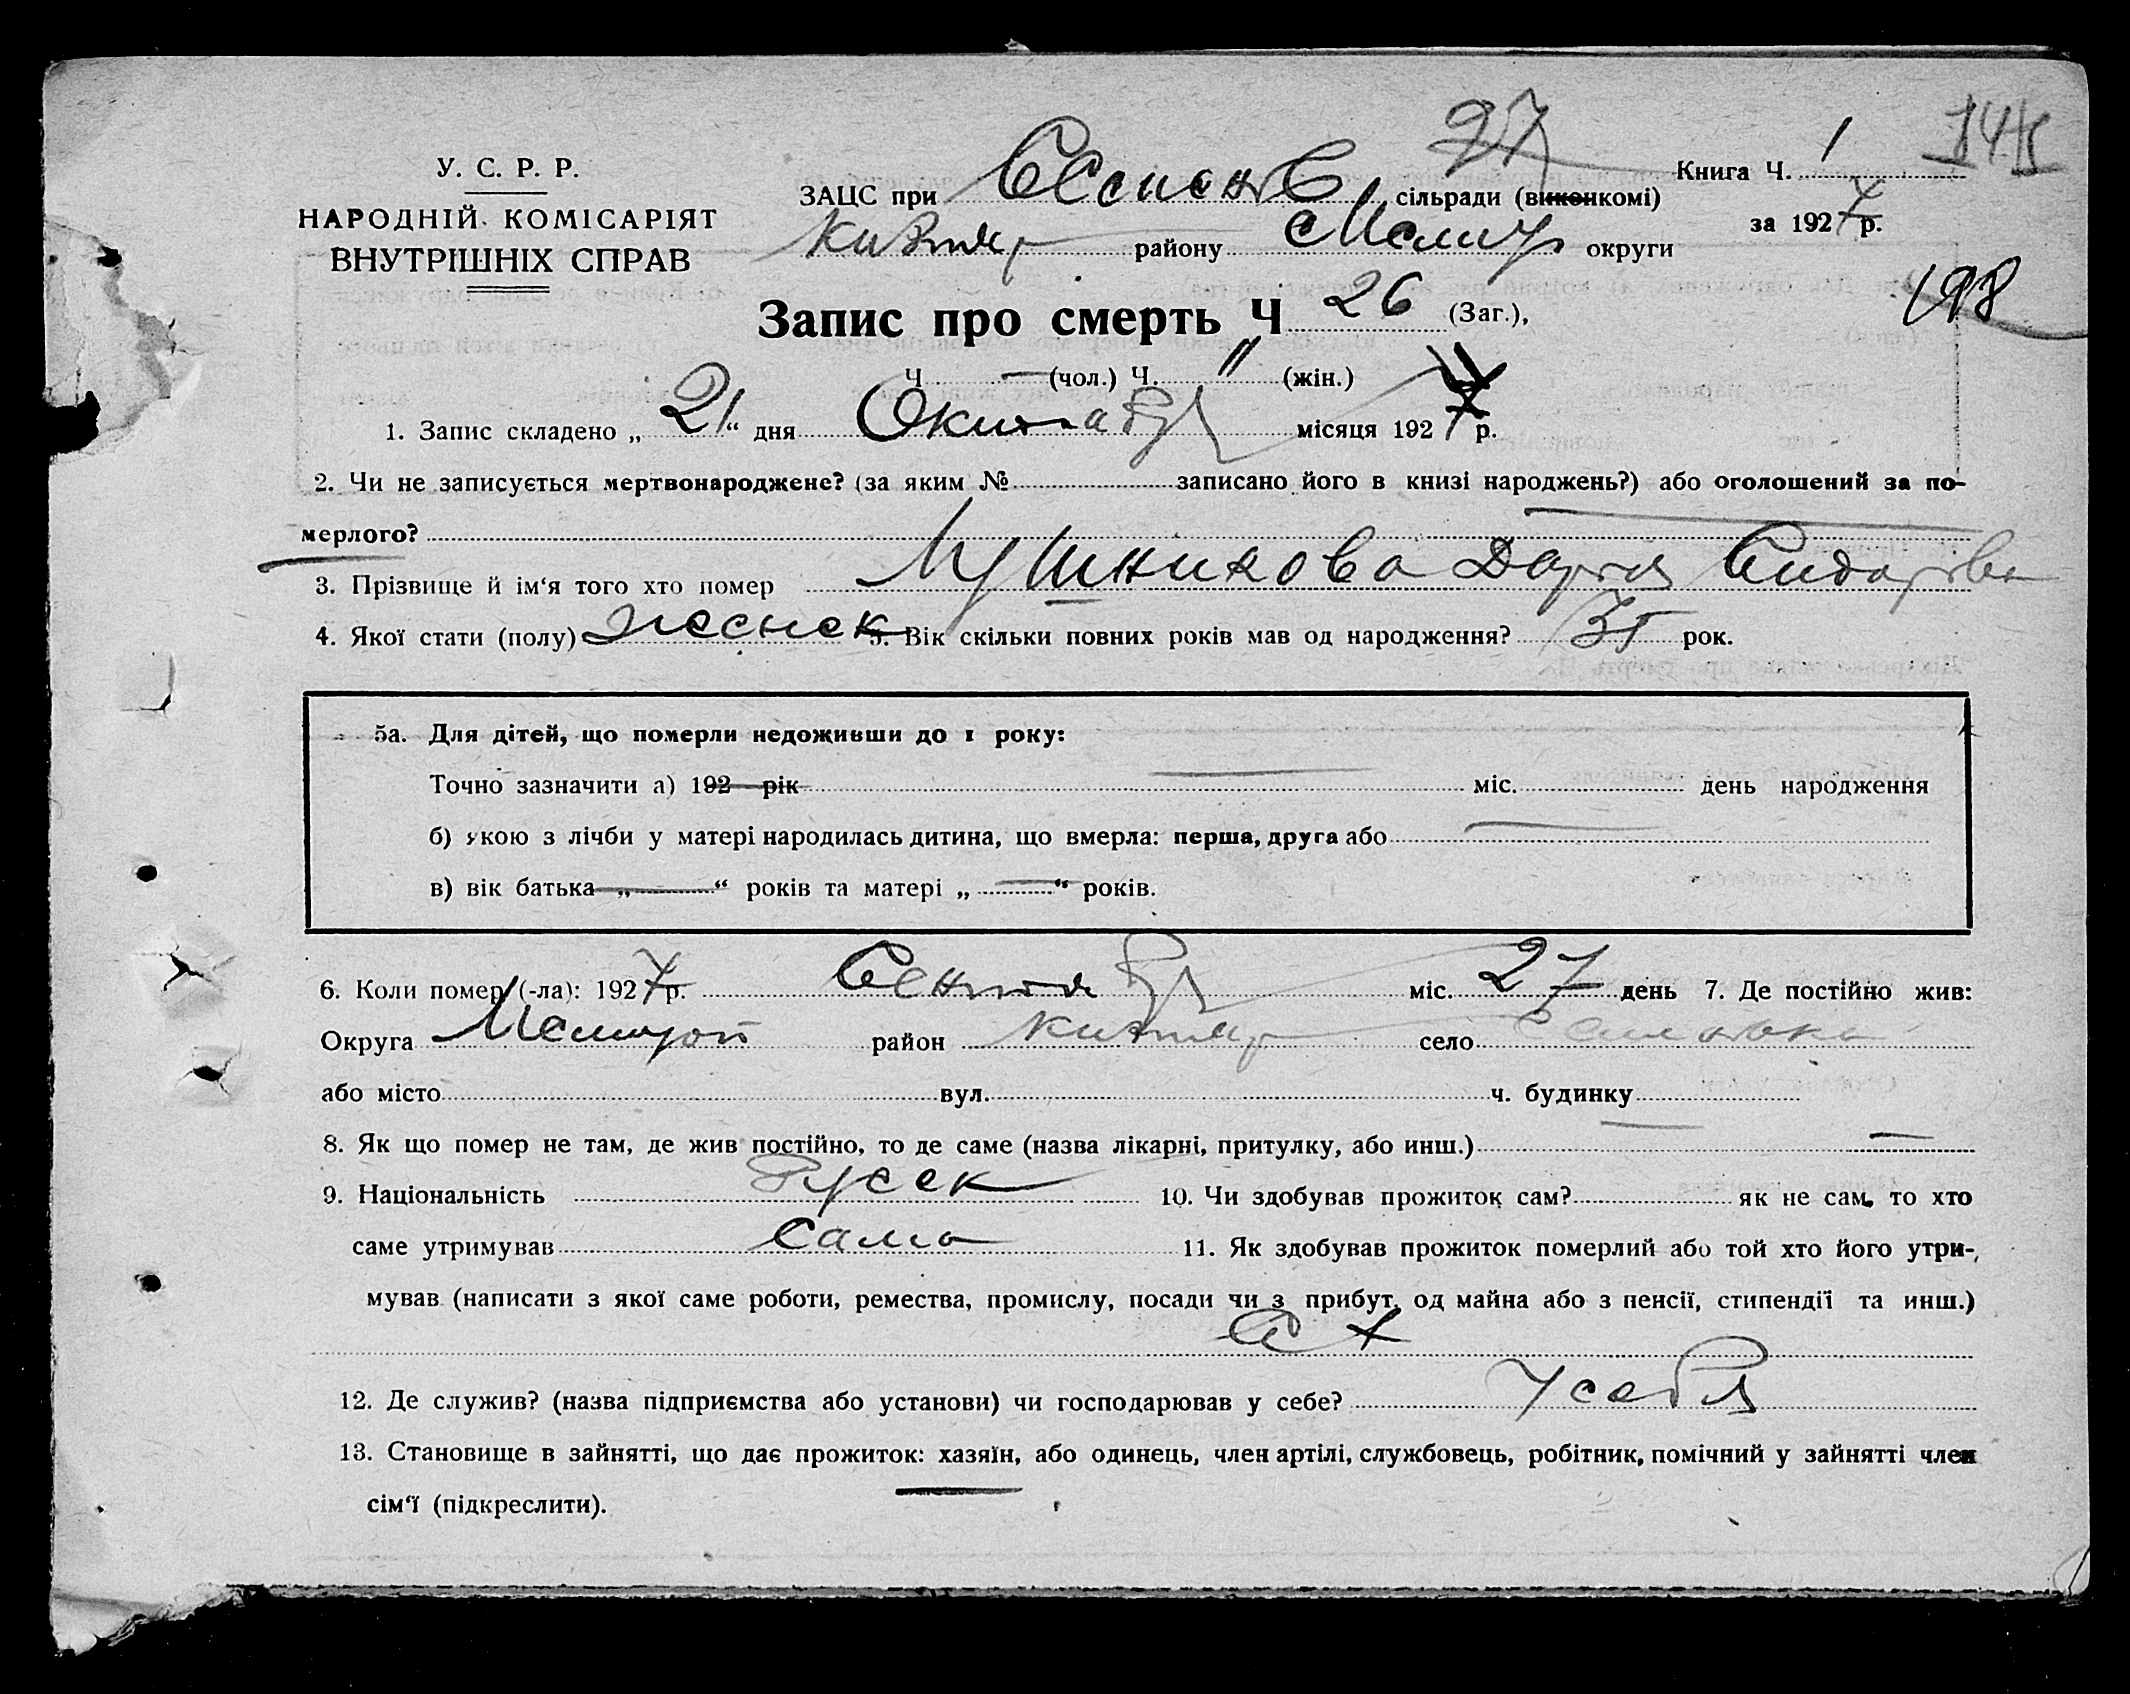 97
Книга Ч. 1
У. С. Р. Р.
ЗАЦС при сільради (виконкомі)
за 1927 р.
НАРОДНІЙ КОМІСАРІЯТ
ВНУТРІШНІХ СПРАВ
району Мелитоп округи
198
Запис про смерть Ч 26 (Заг.),
Ч — (чол.) Ч. 11 (жін.)
1. Запис складено „ 21 “ дня Октября місяця 1927 р.
2. Чи не записується мертвонароджене? (за яким № записано його в книзі народжень?) або оголошений за по-
мерлого?
3. Прізвище й ім‘я того хто помер Лушникова Дария Сидоровна
4. Якої стати (полу) женск 5. Вік скільки повних років мав од народження? рок.
5а. Для дітей, що померли недоживши до 1 року:
Точно зазначити а) 192 рік міс. день народження
б) якою з лічби у матері народилась дитина, що вмерла: перша, друга або
в) вік батька „ — “ років та матері „ — “ років.
6. Коли помер (-ла): 1927 р. Сентября міс. 27 день 7. Де постійно жив:
Округа Мелитоп район село
або місто вул. ч. будинку
8. Як що помер не там, де жив постійно, то де саме (назва лікарні, притулку, або инш.) —
9. Національність Русск 10. Чи здобував прожиток сам? як не сам, то хто
саме утримував сама 11. Як здобував прожиток померлий або той хто його утри-
мував (написати з якої саме роботи, ремества, промислу, посади чи з прибут. од майна або з пенсії, стипендії та инш.)
С Х
12. Де служив? (назва підприємства або установи) чи господарював у себе? У себя
13. Становище в зайнятті, що дає прожиток: хазяїн, або одинець, член артілі, службовець, робітник, помічний у зайнятті член
сім‘ї (підкреслити).